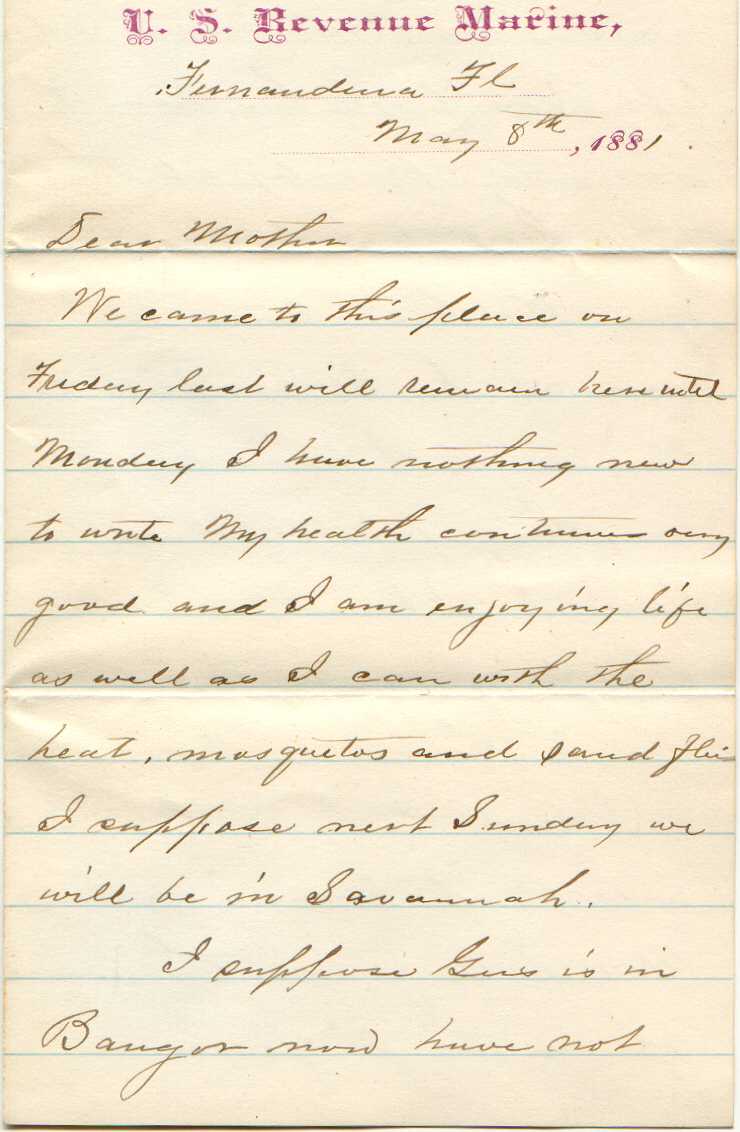 U. S. Revenue Marine,
Fernandina Fl
May 8th, 1881.
Dear Mother
We came to this place on
Friday last will remain here until
Monday I have nothing new
to write My health continues very
good and I am enjoying life
as well as I can with the
heat, mosquetos and sand flies
I suppose next Sunday we
will be in Savannah.
I suppose Gus is in
Bangor now have not